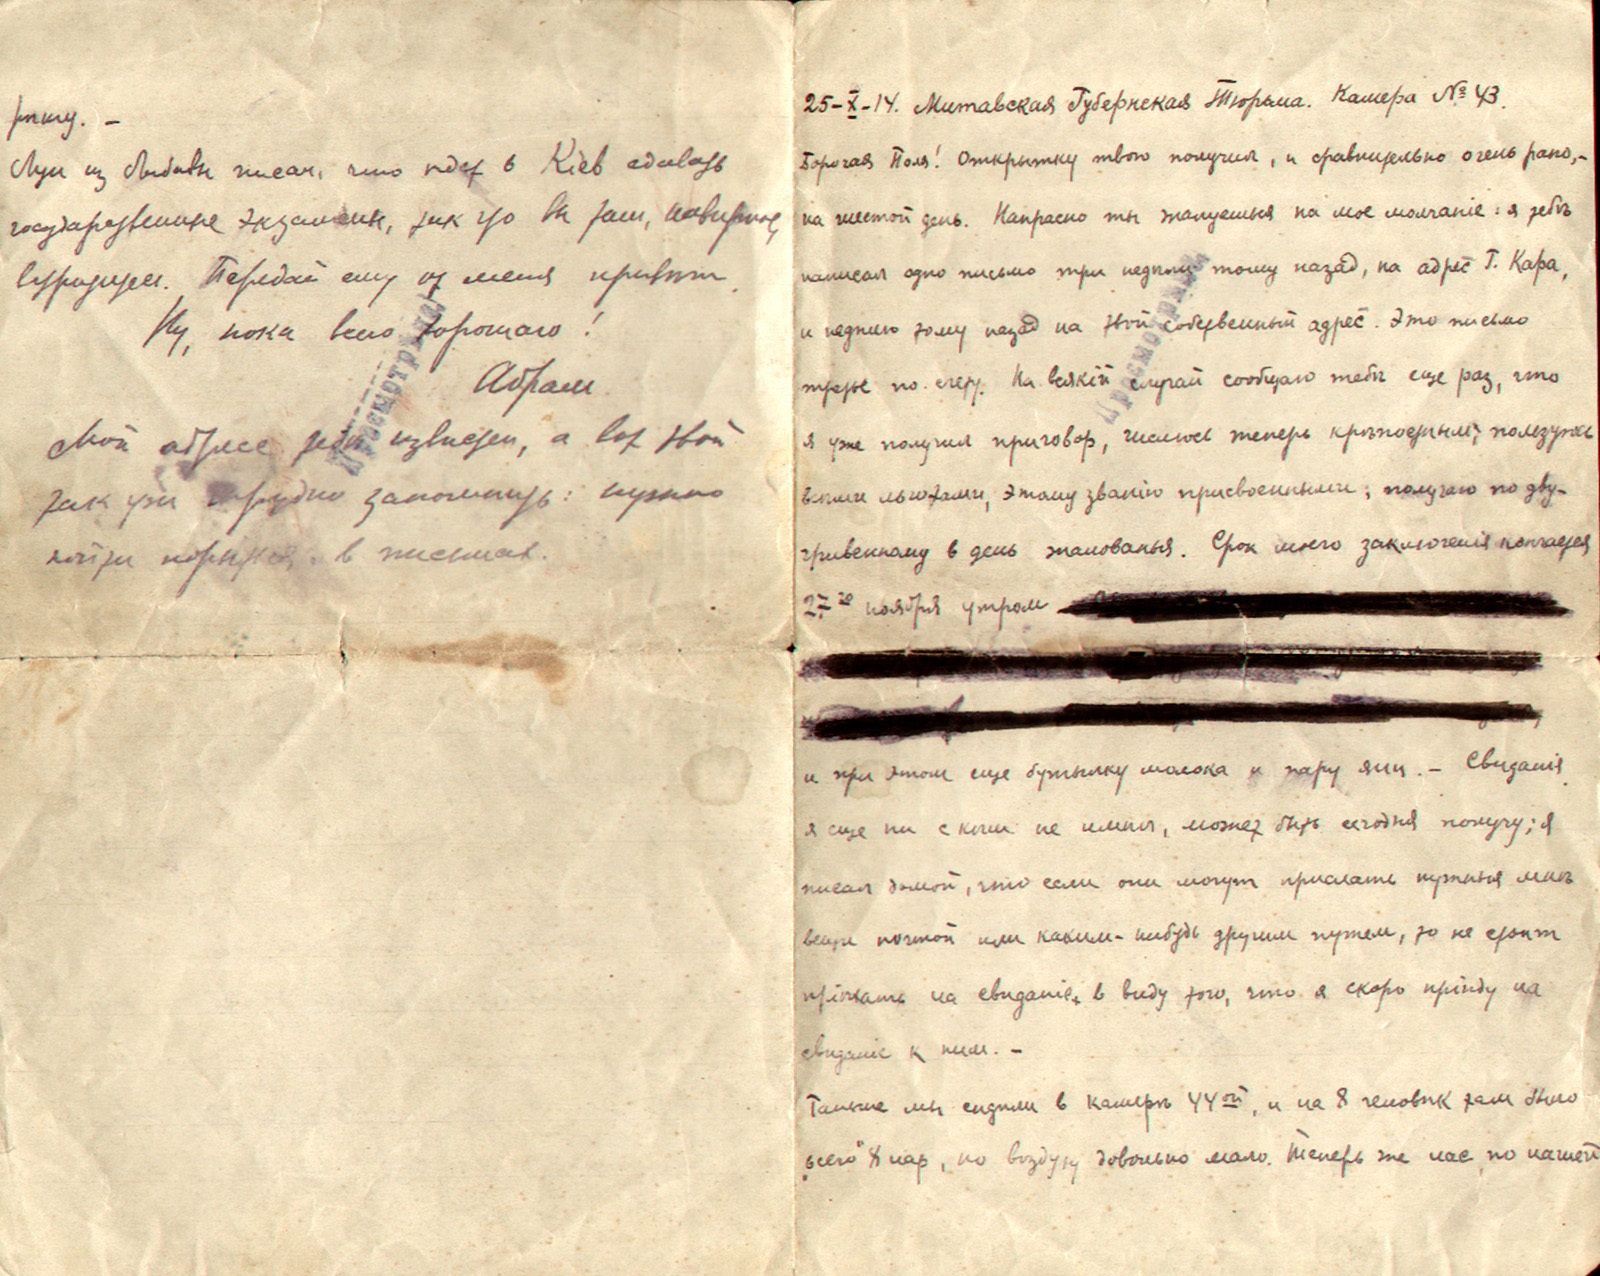 25-X-14. Митавская Губернская Тюрьма. Камера № 43.
Дорогая Поля! Открытку твою получил, и сравнительно очень рано,-
на шестой день. Напрасно ты жалуешься на мое молчаніе: я тебѣ
написал одно письмо три недѣли тому назад, на адрес Г. Кара,
и недѣлю тому назад на твой собственный адрес. Это письмо
третье по счету. На всякій случай сообщаю тебѣ еще раз, что
я уже получил приговор, числюсь теперь крѣпостным, пользуюсь
всѣми льготами, этому званію присвоенными; получаю по дву-
гривенному в день жалованья. Срок моего заключенія кончается
27го ноября утром
и при этом еще бутылку молока и пару яиц. - Свиданія
я еще ни с кѣм не имѣл, может быть сегодня получу; я
писал домой, что если они могут прислать нужныя мнѣ
вещи почтой или каким-нибудь другим путем, то не стоит
пріѣхать на свиданіе, в виду того, что я скоро пріѣду на
свиданіе к ним. -
Раньше мы сидѣли в камерѣ 44ой, и на 8 человѣк там было
всего 8 нар, но воздуху довольно мало. Теперь же нас, по нашей
Просмотрѣно
-
из писал, что ѣдет в Кіев сдавать
государственные экзамены, так что вы там, навѣрное,
встрѣтитесь. Передай ему от меня привѣт.
Ну, пока всего хорошаго!
Абрам.
Мой адрес тебѣ извѣстен, а вот твой
так уж трудно запомнить: нужно
пойти порыться в письмах.
Просмотрѣно